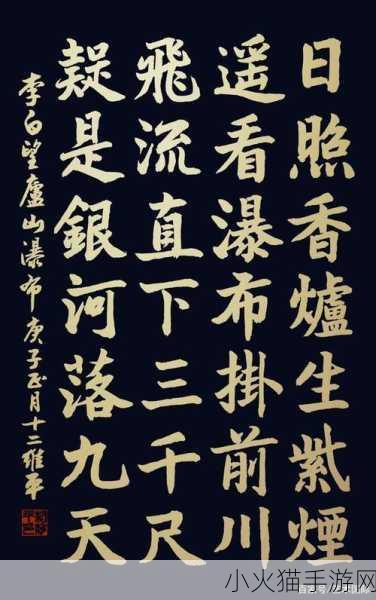 日照香爐生紫煙
遥看瀑布掛前川
飛流直下三千尺
疑是銀河落九天
李白望廬山瀑布庚子正月十二維平
小火猫手游网